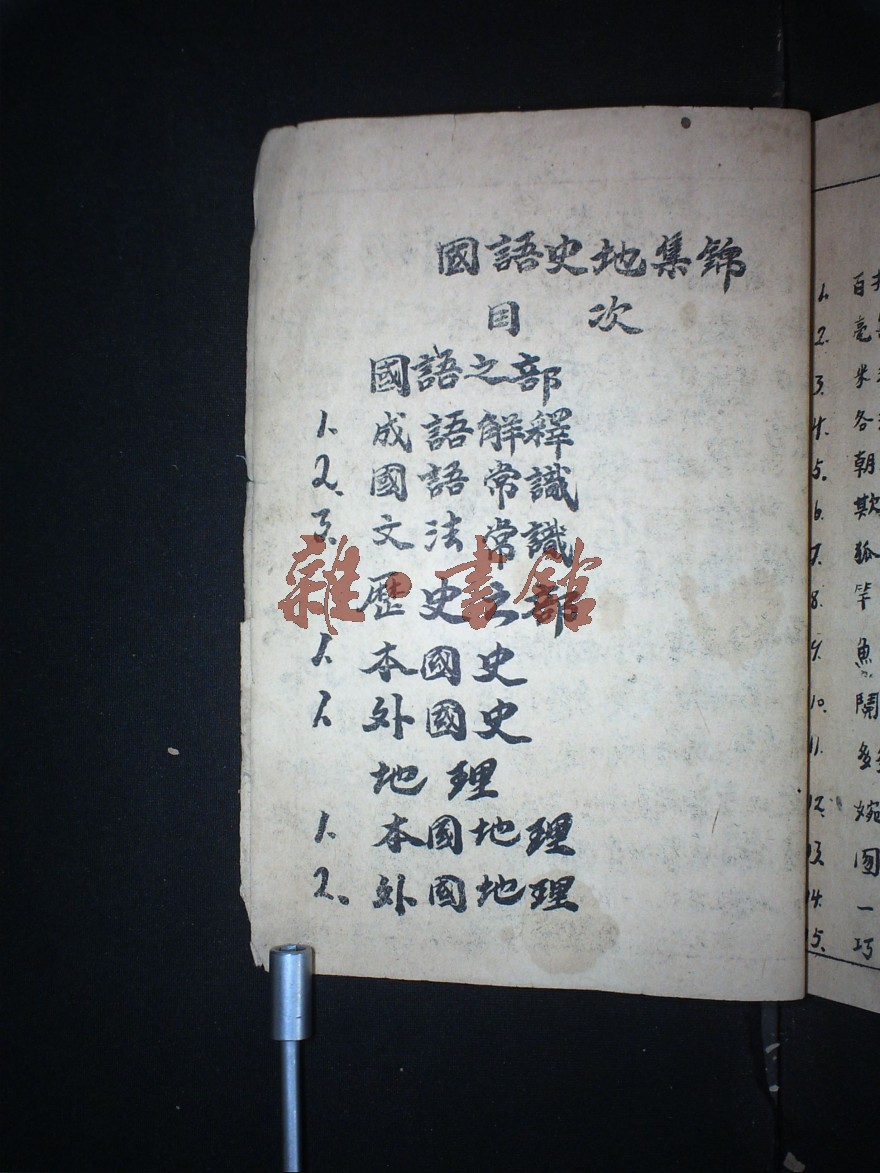 國語史地集錦
目 次
國語之部
1. 成語解釋
2. 國語常識
3. 文法常識
歷史之部
1. 本國史
1. 外國史
地理
1. 本國地理
2. 外國地理
雜·書館
1. 百
2. 毫
3. 米
4. 各
5. 朝
6. 欺
7. 狐
8. 竿
9. 魚
10. 鬩
11.
12. 婉
13. 囹
14. 一
15. 巧